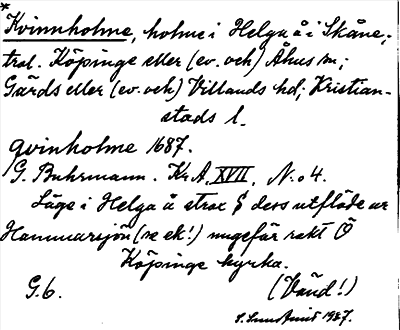 * Kvinnholme, holme i Helga å i Skåne;
trol. Köpinge eller (ev. och) Åhus sn;
Gärds eller (ev. och) Villands hd; Kristian-
stads l.
qvinholme 1687.
G. Buhrmann. Kr A, XVII, N:o 4.
Låge i Helga å strax S ders utflöde ur
Hammarsjön (se ek!) ungefär rakt Ö
Köpinge kyrka.
G.6. (Vänd!)
1927.